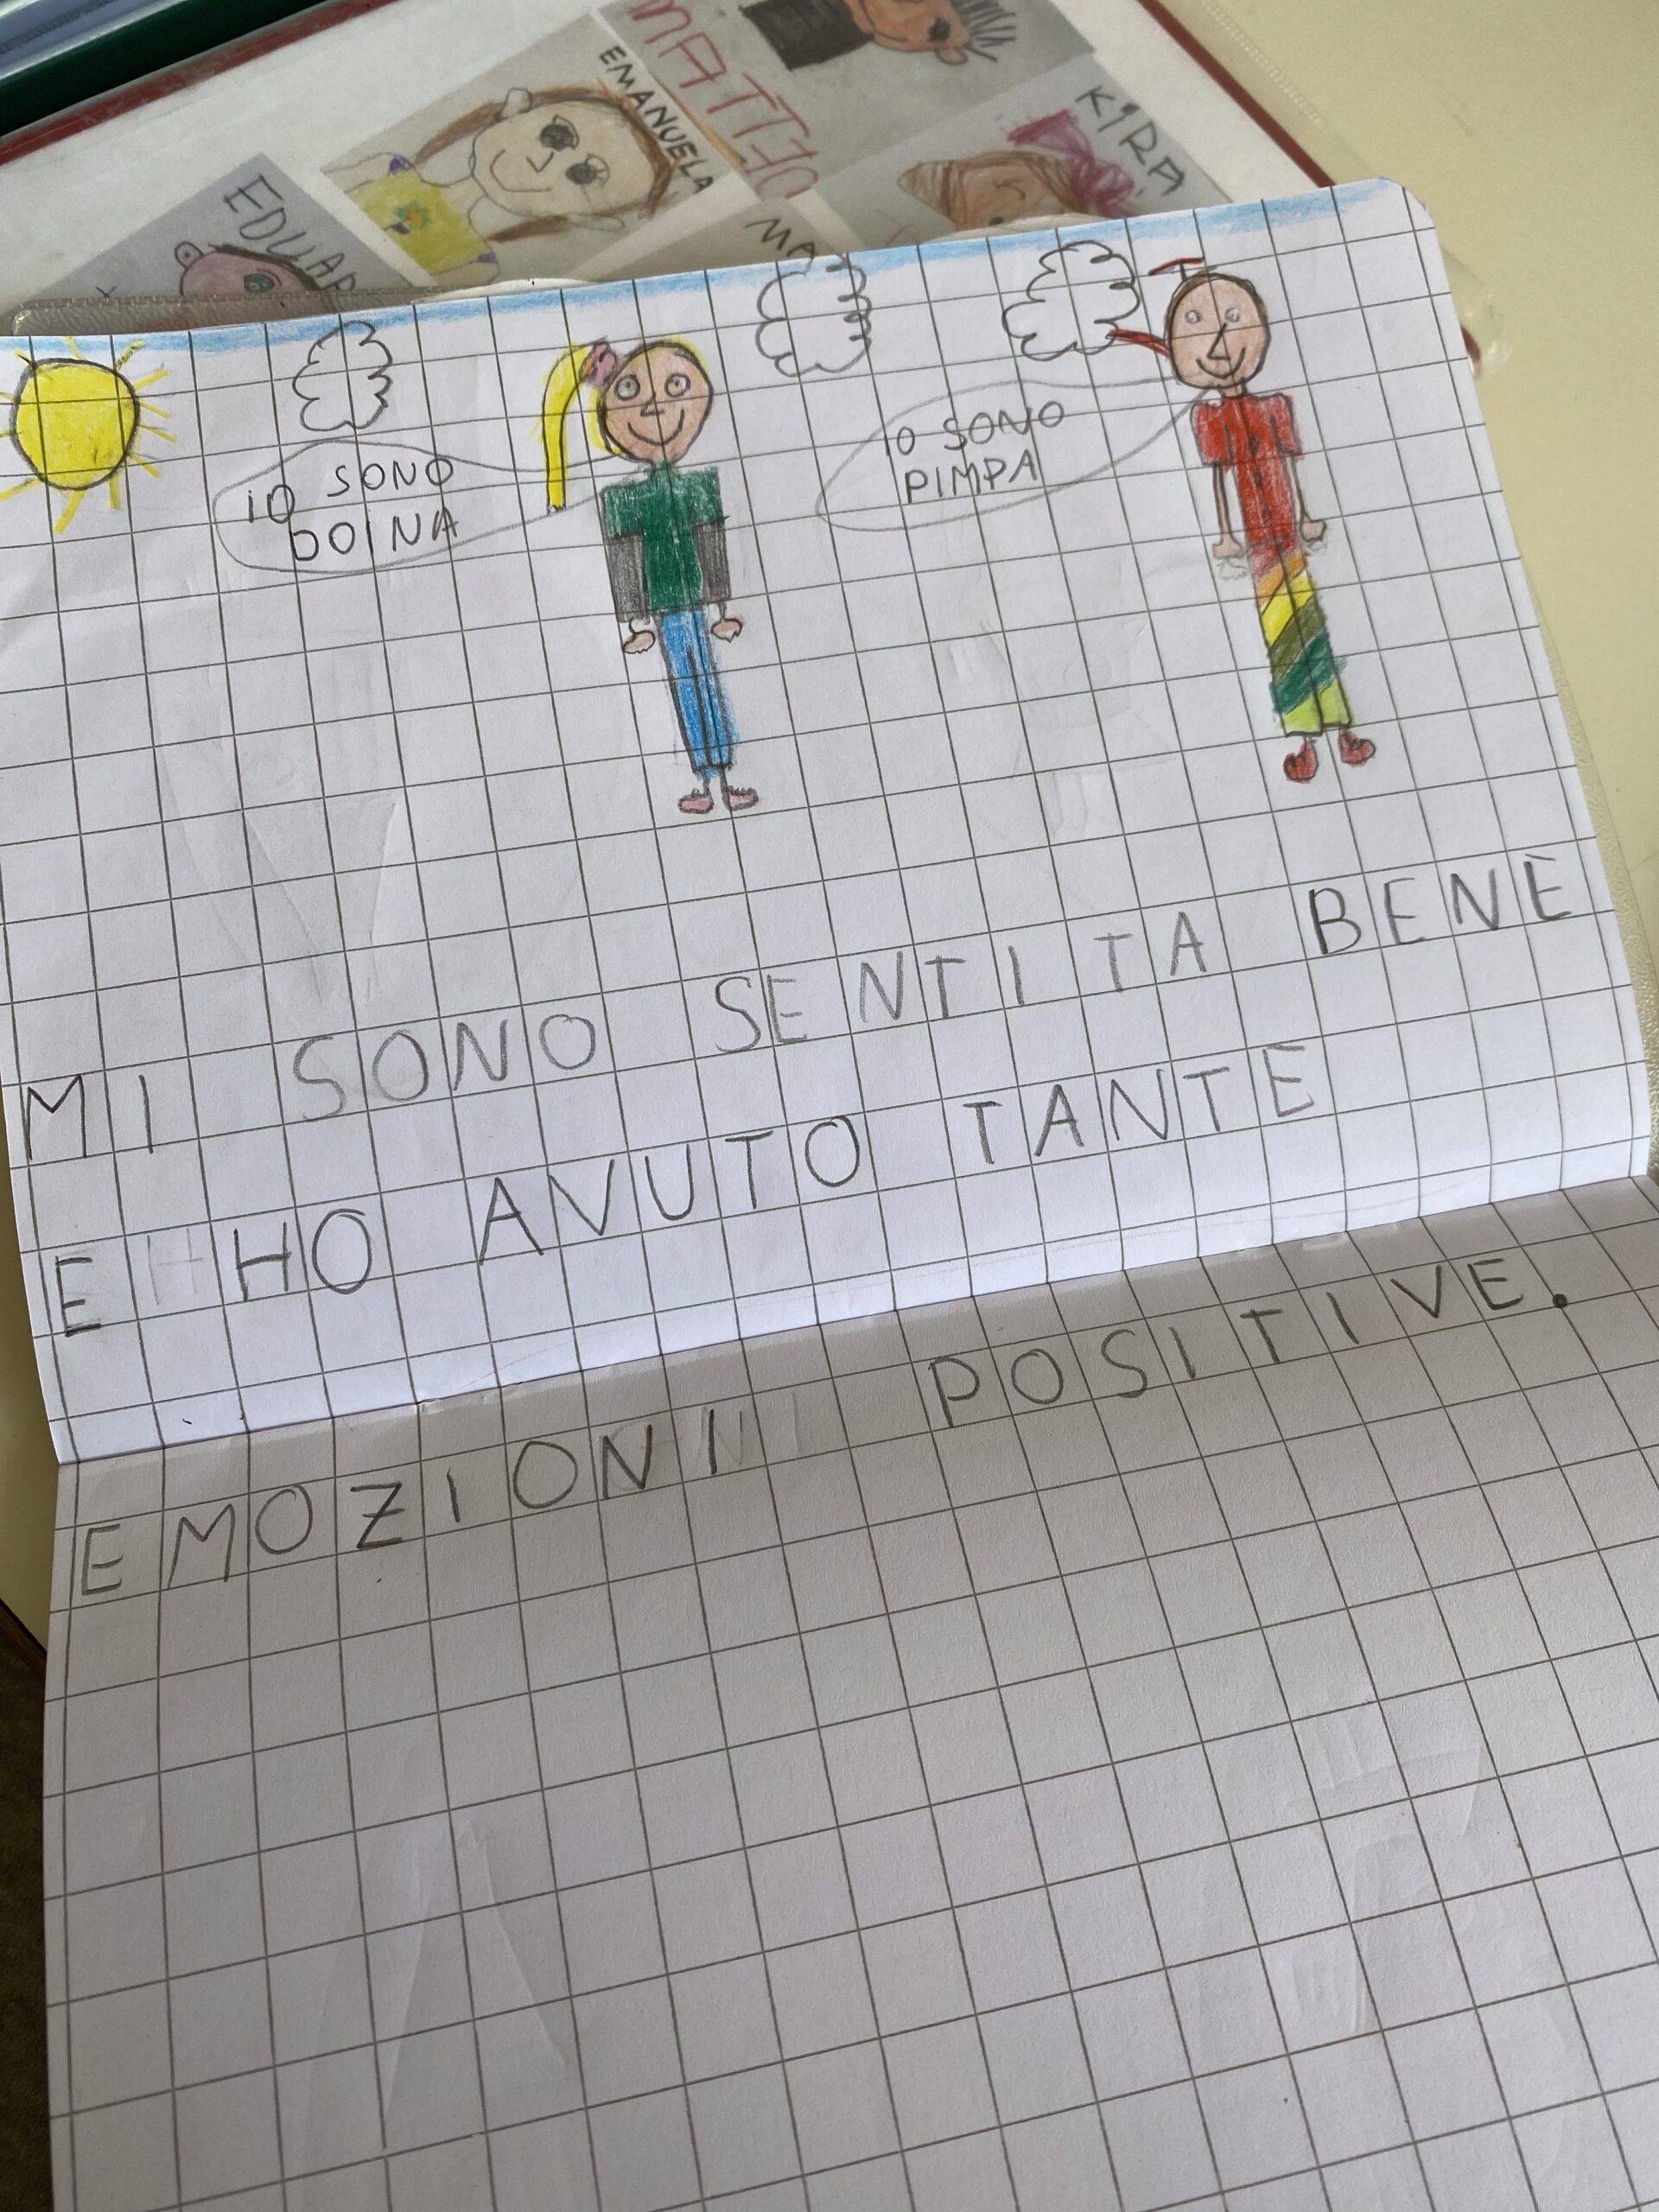 MATTIO
EMANUELA
KIRA
EDUAR
MA
IO SONO
DOINA
IO SONO
PIMPA
MI SONO SENTITA BENÈ
E HO AVUTO TANTE
EMOZIONI POSITIVE.